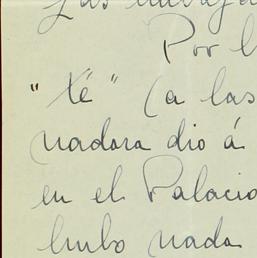 Las
Por l
"té" (a las
nadora dio á
en el Palacio
hubo nada